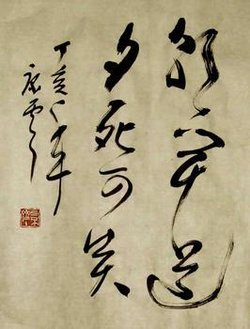 朝聞道
夕死可矣
丁亥年